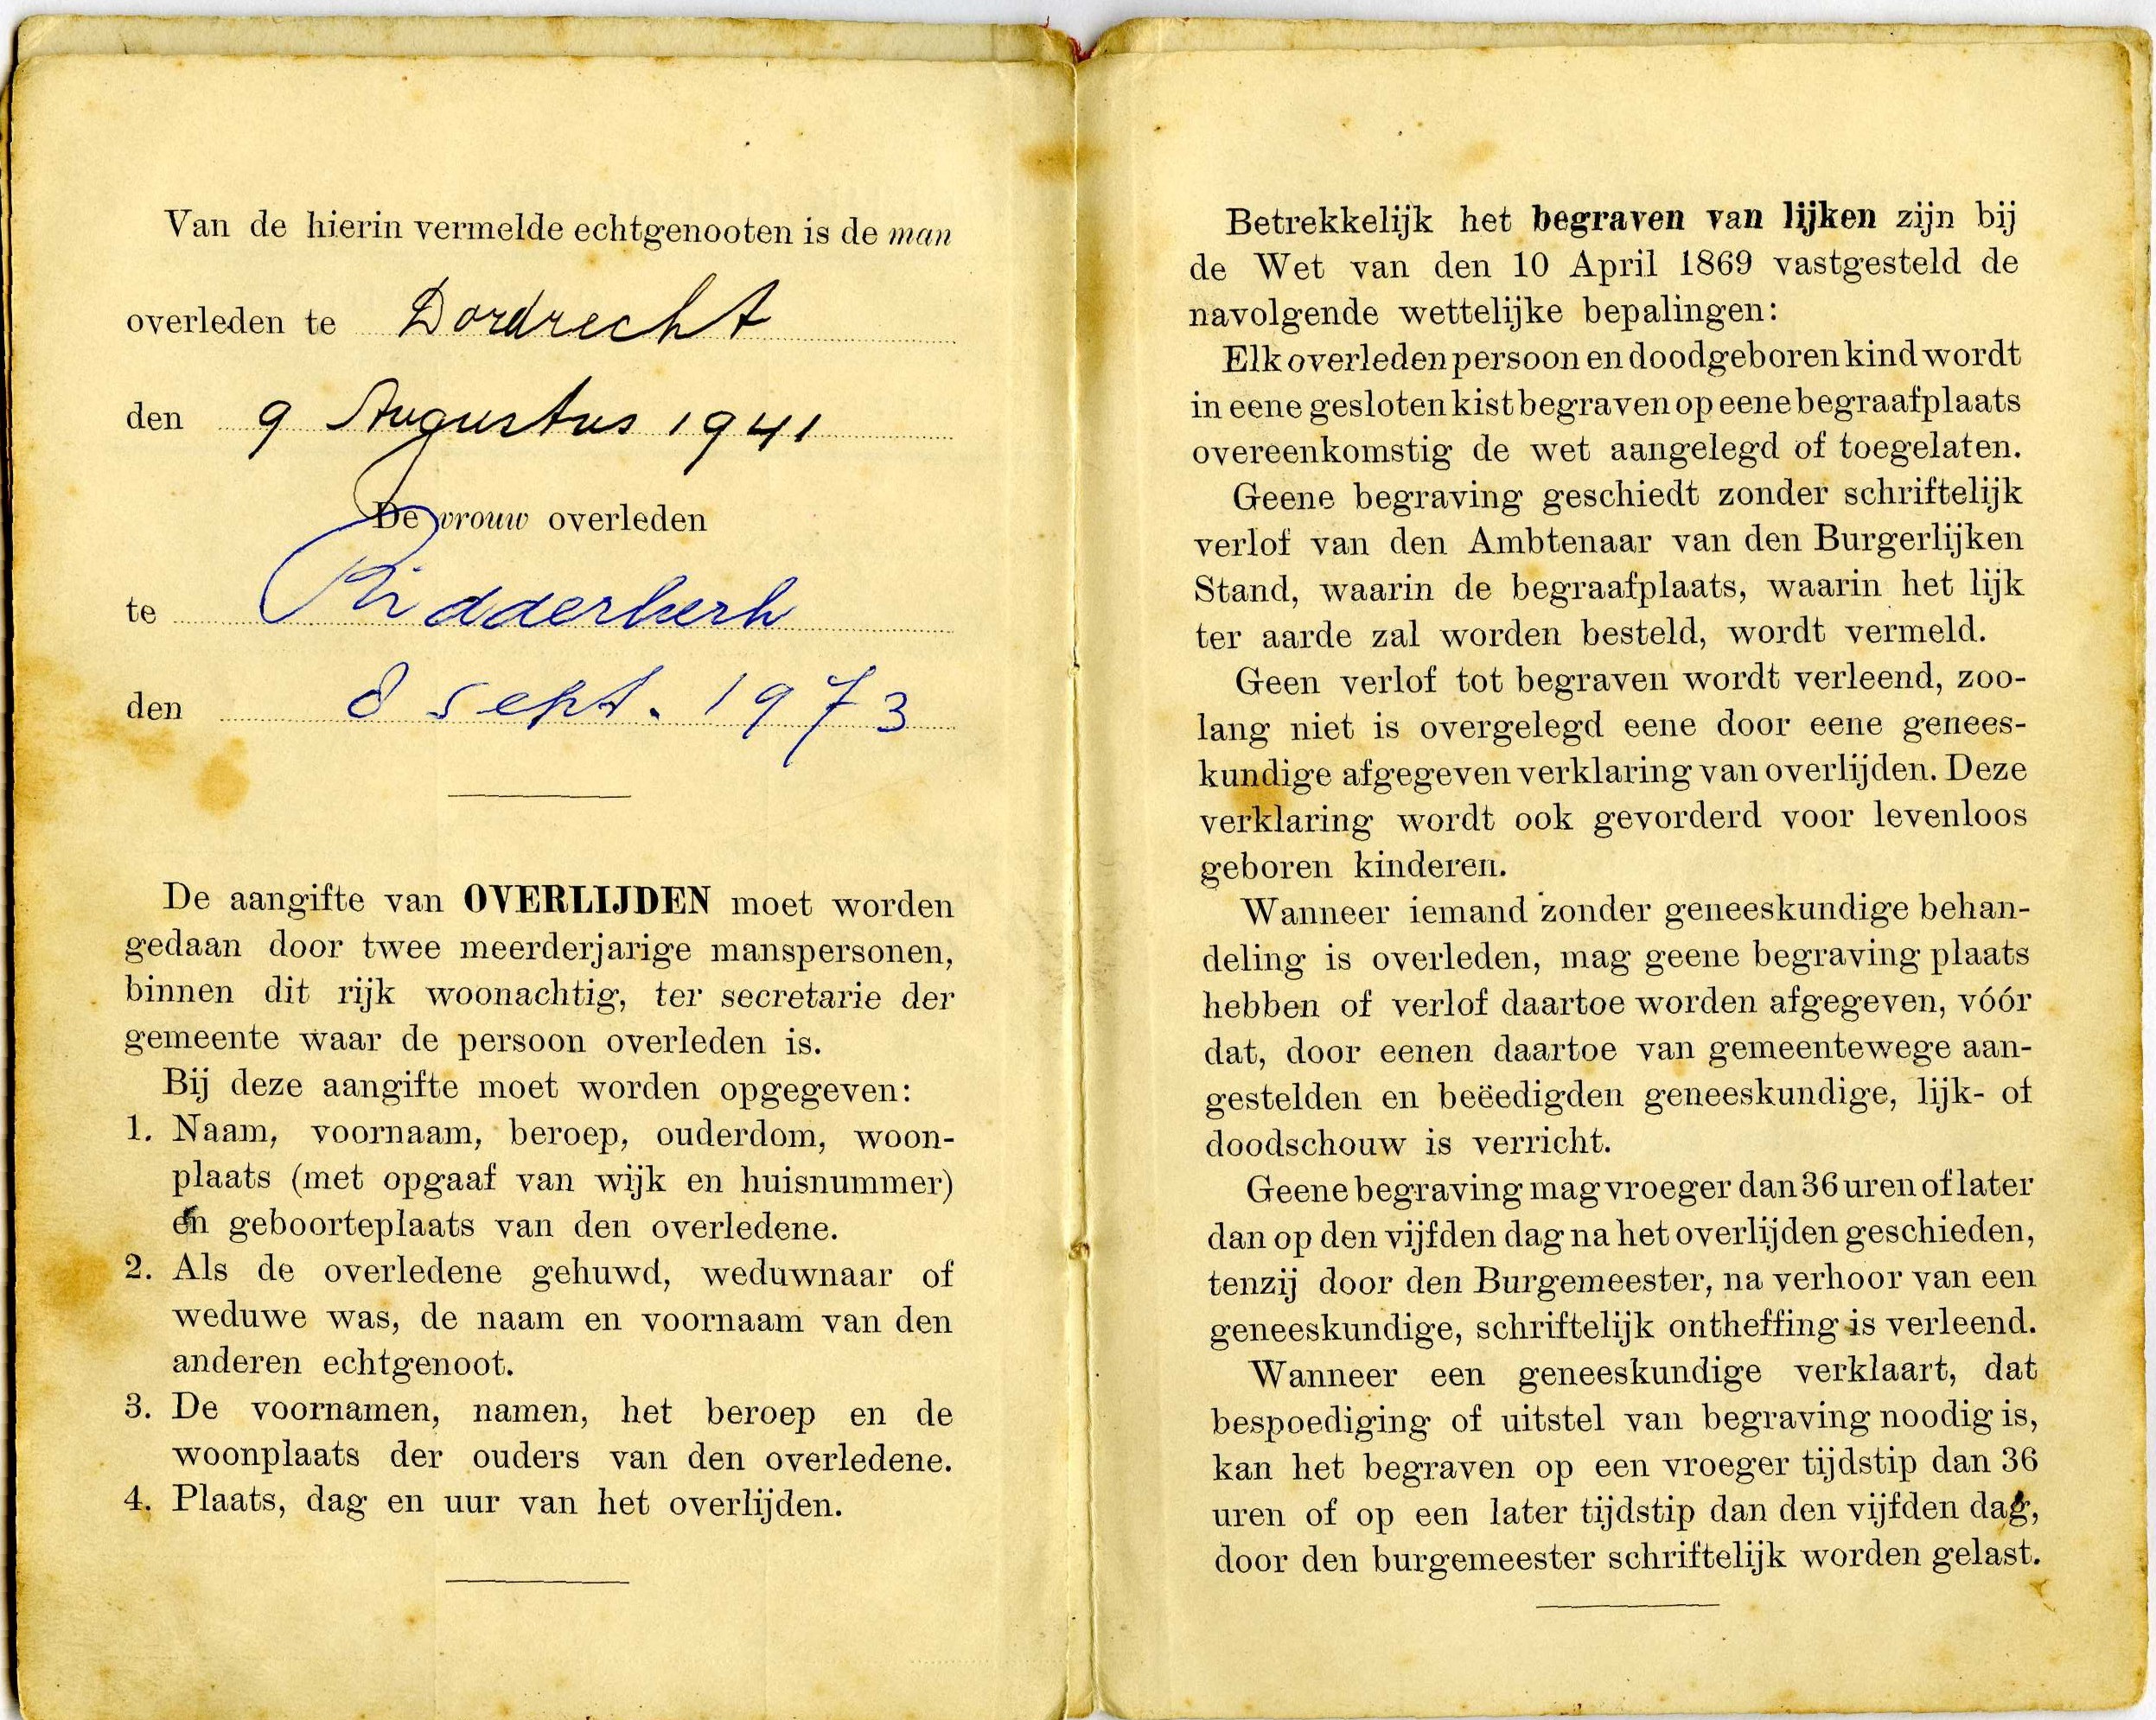 Van de hierin vermelde echtgenooten is de man
overleden te Dordrecht
den 9 Augustus 1941
De vrouw overleden
te Ridderkerk
den 8 sept. 1973
De aangifte van OVERLIJDEN moet worden
gedaan door twee meerderjarige manspersonen,
binnen dit rijk woonachtig, ter secretarie der
gemeente waar de persoon overleden is.
Bij deze aangifte moet worden opgegeven:
1. Naam, voornaam, beroep, ouderdom, woon-
plaats (met opgaaf van wijk en huisnummer)
en geboorteplaats van den overledene.
2. Als de overledene gehuwd, weduwnaar of
weduwe was, de naam en voornaam van den
anderen echtgenoot.
3. De voornamen, namen, het beroep en de
woonplaats der ouders van den overledene.
4. Plaats, dag en uur van het overlijden.
Betrekkelijk het begraven van lijken zijn bij
de Wet van den 10 April 1869 vastgesteld de
navolgende wettelijke bepalingen:
Elk overleden persoon en doodgeboren kind wordt
in eene gesloten kist begraven op eene begraafplaats
overeenkomstig de wet aangelegd of toegelaten.
Geene begraving geschiedt zonder schriftelijk
verlof van den Ambtenaar van den Burgerlijken
Stand, waarin de begraafplaats, waarin het lijk
ter aarde zal worden besteld, wordt vermeld.
Geen verlof tot begraven wordt verleend, zoo-
lang niet is overgelegd eene door eene genees-
kundige afgegeven verklaring van overlijden. Deze
verklaring wordt ook gevorderd voor levenloos
geboren kinderen.
Wanneer iemand zonder geneeskundige behan-
deling is overleden, mag geene begraving plaats
hebben of verlof daartoe worden afgegeven, vóór
dat, door eenen daartoe van gemeentewege aan-
gestelden en beëedigden geneeskundige, lijk- of
doodschouw is verricht.
Geene begraving mag vroeger dan 36 uren of later
dan op den vijfden dag na het overlijden geschieden,
tenzij door den Burgemeester, na verhoor van een
geneeskundige, schriftelijk ontheffing is verleend.
Wanneer een geneeskundige verklaart, dat
bespoediging of uitstel van begraving noodig is,
kan het begraven op een vroeger tijdstip dan 36
uren of op een later tijdstip dan den vijfden dag,
door den burgemeester schriftelijk worden gelast.